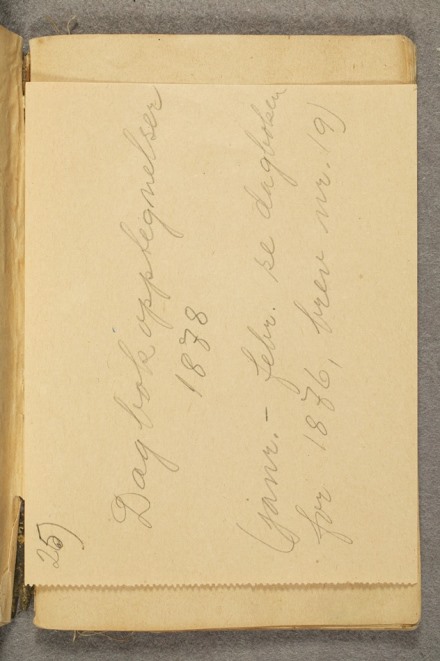 25)
Dagbokopptegnelser
1878
(janr.- febr. se dagboken
for 1876, brev nr. 19)